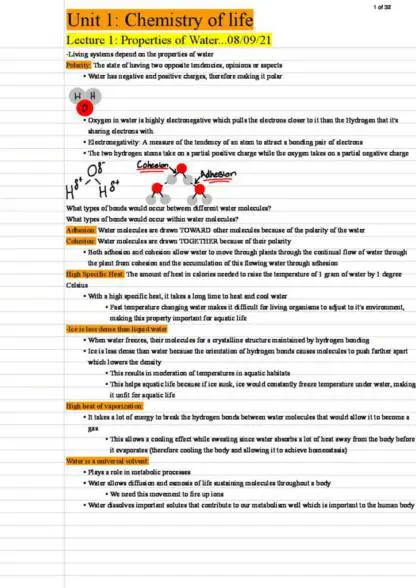 1 of 32
Unit 1: Chemistry of life
Lecture 1: Properties of Water...08/09/21
-Living systems depend on the properties of water
Polarity: The state of having two opposite tendencies, opinions or aspects
• Water has negative and positive charges, therefore making it polar
H H
O
• Oxygen in water is highly electronegative which pulls the electrons closer to it than the Hydrogen that it's
sharing electrons with.
• Electronegativity: A measure of the tendency of an atom to attract a bonding pair of electrons
• The two hydrogen atoms take on a partial positive charge while the oxygen takes on a partial negative charge
Cohesion
Adhesion
Oδ-
Hδ+ Hδ+
What types of bonds would occur between different water molecules?
What types of bonds would occur within water molecules?
Adhesion: Water molecules are drawn TOWARD other molecules because of the polarity of the water
Cohesion: Water molecules are drawn TOGETHER because of their polarity
• Both adhesion and cohesion allow water to move through plants through the continual flow of water through
the plant from cohesion and the accumulation of this flowing water through adhesion
High Specific Heat: The amount of heat in calories needed to raise the temperature of 1 gram of water by 1 degree
Celsius
• With a high specific heat, it takes a long time to heat and cool water
• Fast temperature changing water makes it difficult for living organisms to adjust to it's environment,
making this property important for aquatic life
-Ice is less dense than liquid water
• When water freezes, their molecules for a crystalline structure maintained by hydrogen bonding
• Ice is less dense than water because the orientation of hydrogen bonds causes molecules to push farther apart
which lowers the density
• This results in moderation of temperatures in aquatic habitats
• This helps aquatic life because if ice sunk, ice would constantly freeze temperature under water, making
it unfit for aquatic life
High heat of vaporization:
• It takes a lot of energy to break the hydrogen bonds between water molecules that would allow it to become a
gas
• This allows a cooling effect while sweating since water absorbs a lot of heat away from the body before
it evaporates (therefore cooling the body and allowing it to achieve homeostasis)
Water is a universal solvent:
• Plays a role in metabolic processes
• Water allows diffusion and osmosis of life sustaining molecules throughout a body
• We need this movement to fire up ions
• Water dissolves important solutes that contribute to our metabolism well which is important to the human body